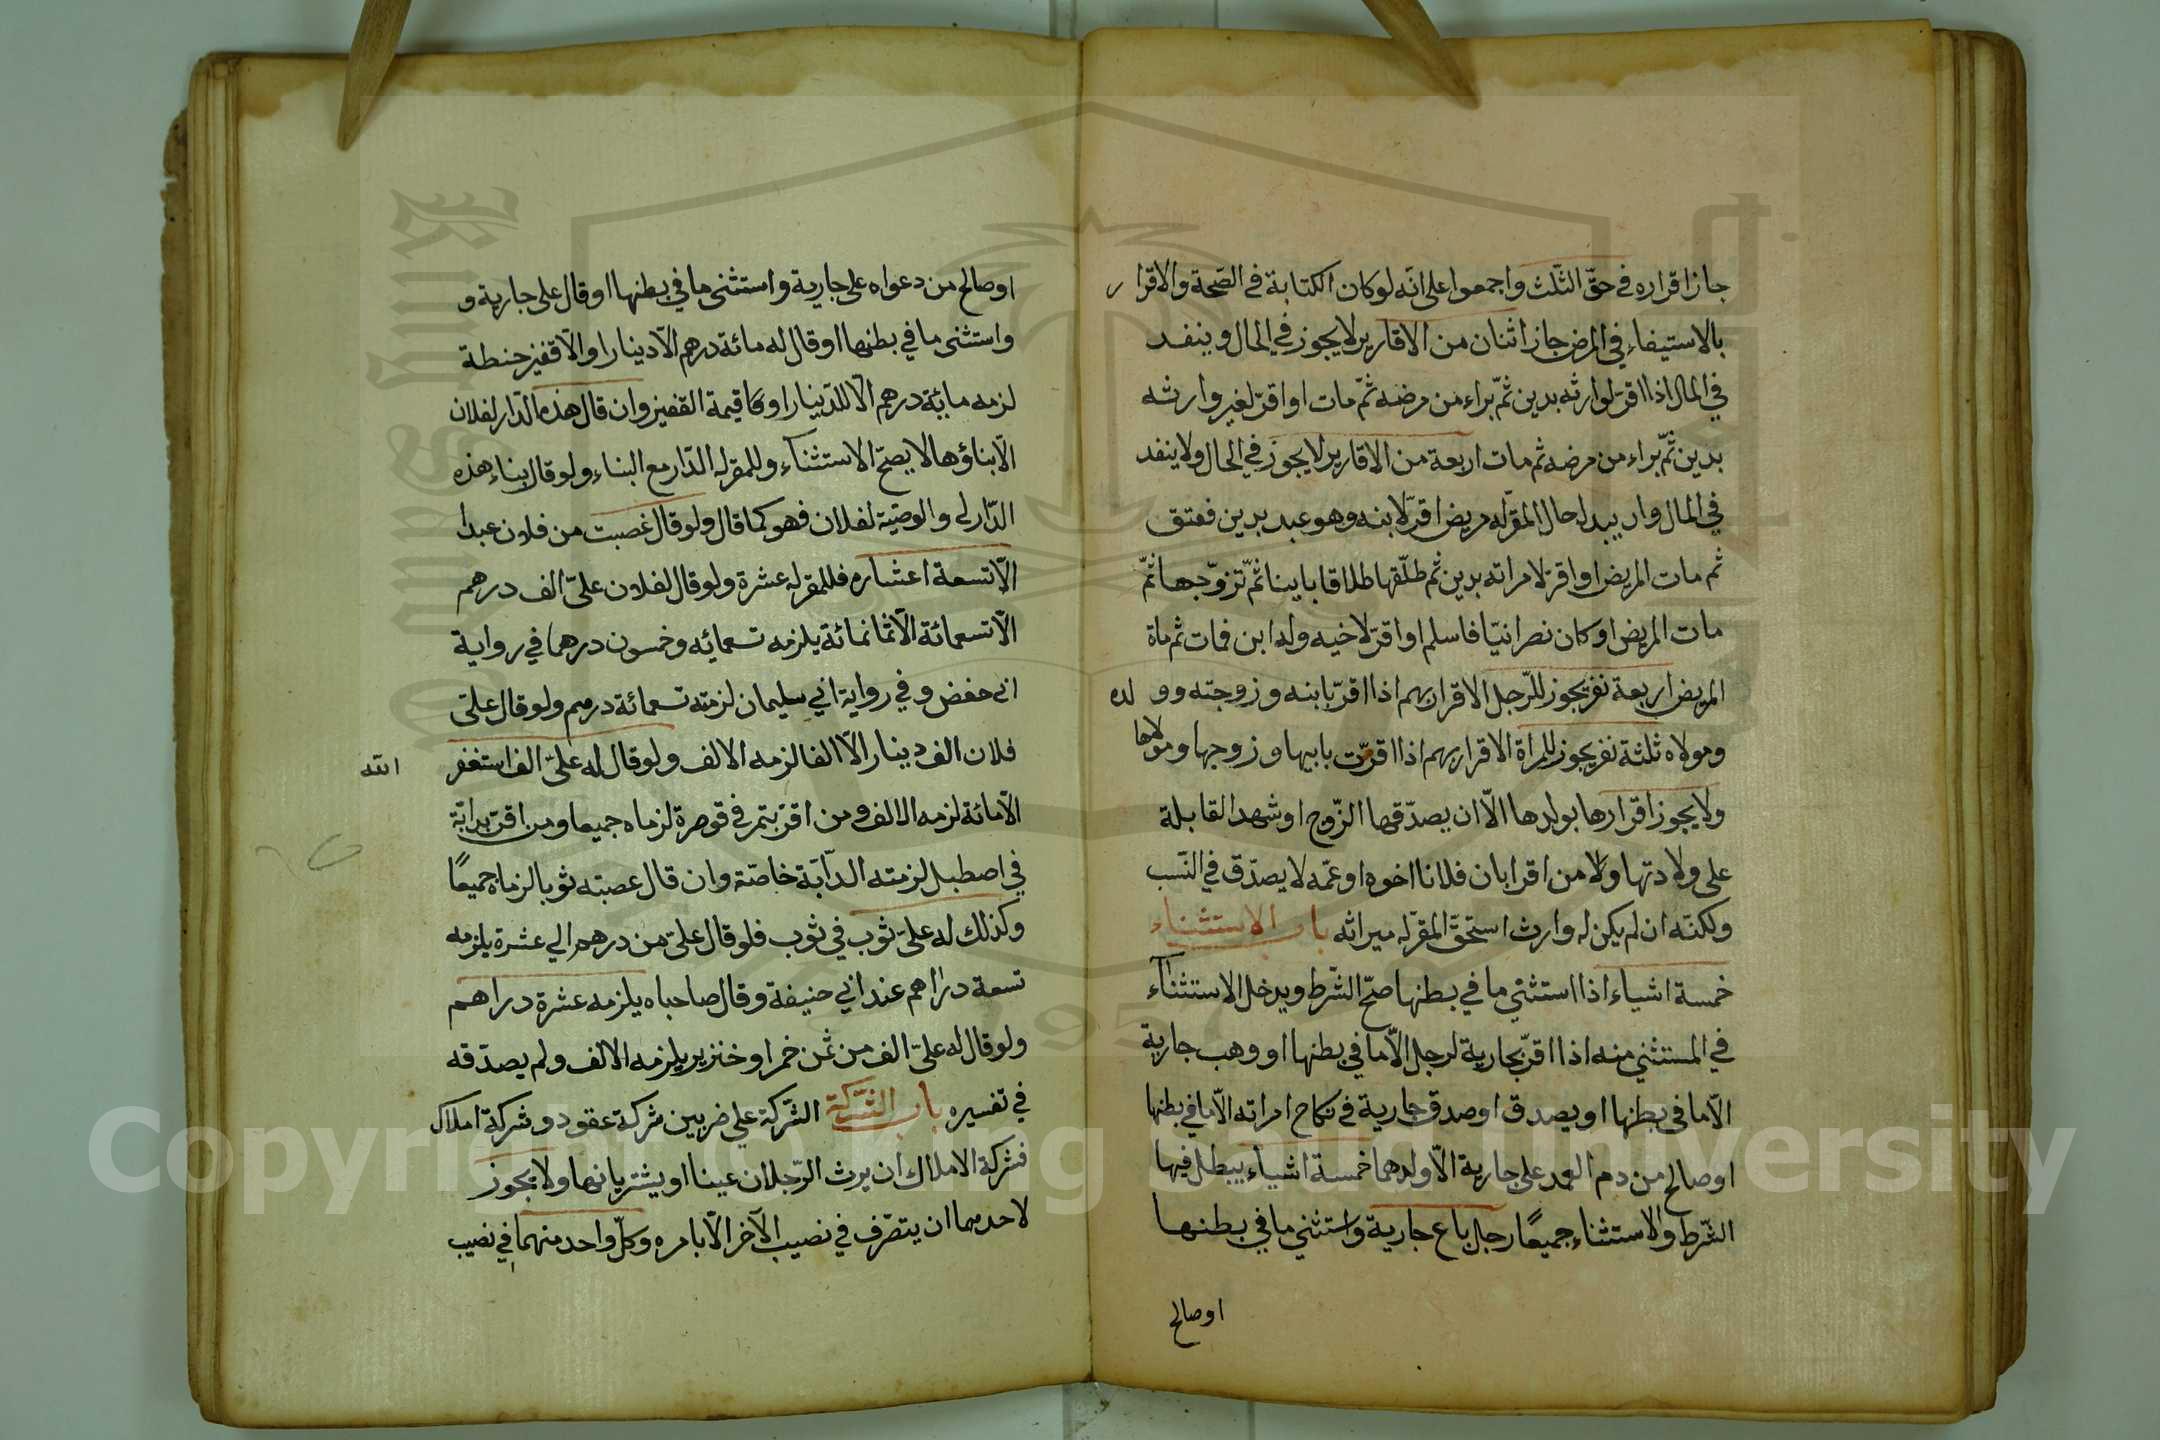 جاز اقراره في حقّ الثّلث واجمعوا على انّه لو كان الكتابة في الصّحّة والاقرا ر
بالاستيفاء في المرض جاز اثنان من الاقارير لا يجوز في الحال وينفد
في المال اذا اقرّ لوارثه بدين ثمّ براء من مرضه ثمّ مات او اقرّ لغير وارثه
بدين ثمّ براء من مرضه ثم مات اربعة من الاقارير لا يجوز في الحال ولا ينفد
في المال وان يبدل حال المقرّ له مريض اقرّ لابنه وهو عبد بدين فعتق
ثم مات المريض او اقرّ لامراته بدين ثم طلّقها طلاقا باينا ثمّ تزوّجها ثمّ
مات المريض او كان نصرانيّا فاسلم او اقرّ لاخيه وله ابن فمات ثم ماة
المريض اربعة نفر يجوز للرّجل الاقرار بهم اذا اقرّ بابنه وزوجته وو لده
ومولاه ثلثة نفر يجوز للمراة الاقرار بهم اذا اقرّت بابيها وزوجها ومولاها
ولا يجوز اقرارها بولدها الّا ان يصدّقها الزّوج او شهد القابلة
على ولادتها ولا من اقر ابان فلانا اخوه او عمّه لا يصدّق في النّسب
ولكنّه ان لم يكن له وارث استحقّ المقرّ له ميراثه باب الاستثناء
خمسة اشياء اذا استثنى ما في بطنها صحّ الشّرط ويدخل الاستثنآء
في المستثني منه اذا اقرّ بجارية لرجل الّا ما في بطنها او وهب جارية
الّا ما في بطنها او يصدق او صدق جارية في نكاح امراته الّا ما في بطنها
او صالح من دم العمد على جارية الّا ولدهما خمسة اشياء يبطل فيها
الشّرط والاستثناء جميعًا رجل باع جارية واستثني ما في بطنها
او صالح
او صالح من دعواه على جارية واستثنى ما في بطنها او قال على جارية و
واستثنى ما في بطنها او قال له مائة درهم الّا دينارا او الّا قفيز حنطة
لزمه مايّة درهم الّا الدّينار او كا قيمة القفيز وان قال هذه الدّار لفلان
الّا بناؤها لا يصحّ الاستثنآء وللمقر له الدّار مع البناء ولو قال بناء هذه
الدّار لي والوصيّة لفلان فهو كما قال ولو قال غصبت من فلان عبدا
الّا تسعة اعشاره فللمقر له عشرة ولو قال لفلان عليّ الف درهم
الّا تسعمائة الّا ثمانمائة يلزمه تسعمايه وخمسون درهما في رواية
ابي حفض وفي رواية ابي سليمان لزمته تسعمائة درهم ولو قال عليّ
فلان الف دينار الّا الفا لزمه الالف ولو قال له عليّ الف استغفر الله
الّا مائة لزمه الالف ومن اقرّ بتمر في قوصرة لزماه جميعا ومن اقرّ بدابّة
في اصطبل لزمته الدّابّة خاصّة وان قال غصبته ثوبا لزماه جميعًا
وكذلك له عليّ ثوب في ثوب فلو قال عليّ من درهم الي عشرة يلزمه
تسعة دراهم عند ابي حنيفة وقال صاحباه يلزمه عشرة دراهم
ولو قال له عليّ الف من ثمن خمر او خنزير يلزمه الالف ولم يصدّقه
في تفسيره باب الشّركة الشّركة علي ضربين شركة عقود وشركة املاك
فشركة الاملاك ان يرث الرّجلان عينا او يشتريانها ولا يجوز
لاحدهما ان يتصرّف في نصيب الآخر الّا بامره وكلّ واحد منهما في نصيب
Copyright © King Saud University
King Saud University
1957